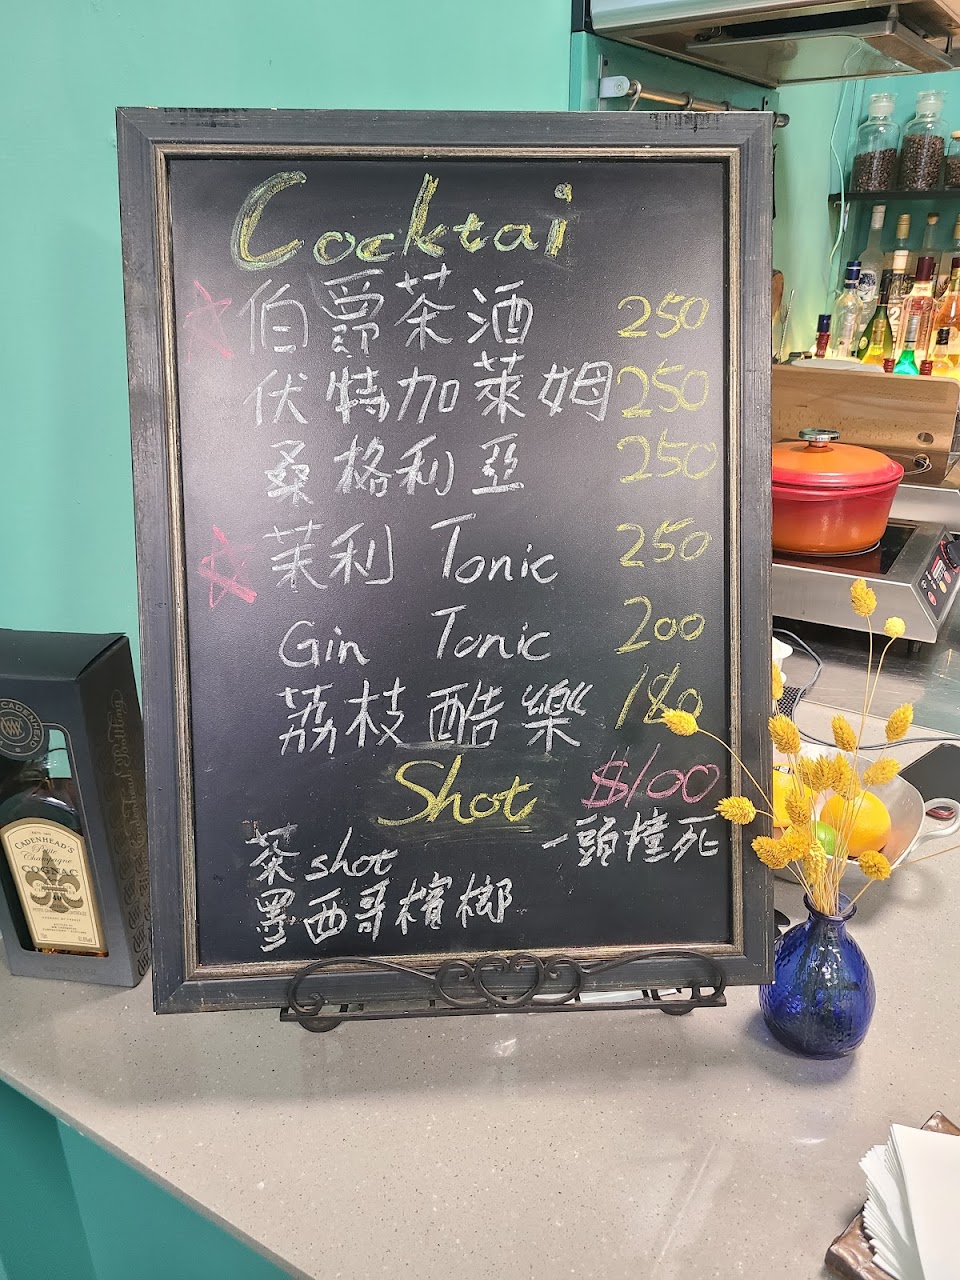 Cocktai
伯爵茶酒 250
伏特加萊姆 250
桑格利亞 250
茉利 Tonic 250
Gin Tonic 200
荔枝酷樂 180
Shot $100
茶shot 一頭撞死
墨西哥檳榔
CADENHEAD'S
Petite
Champagne
COGNAC